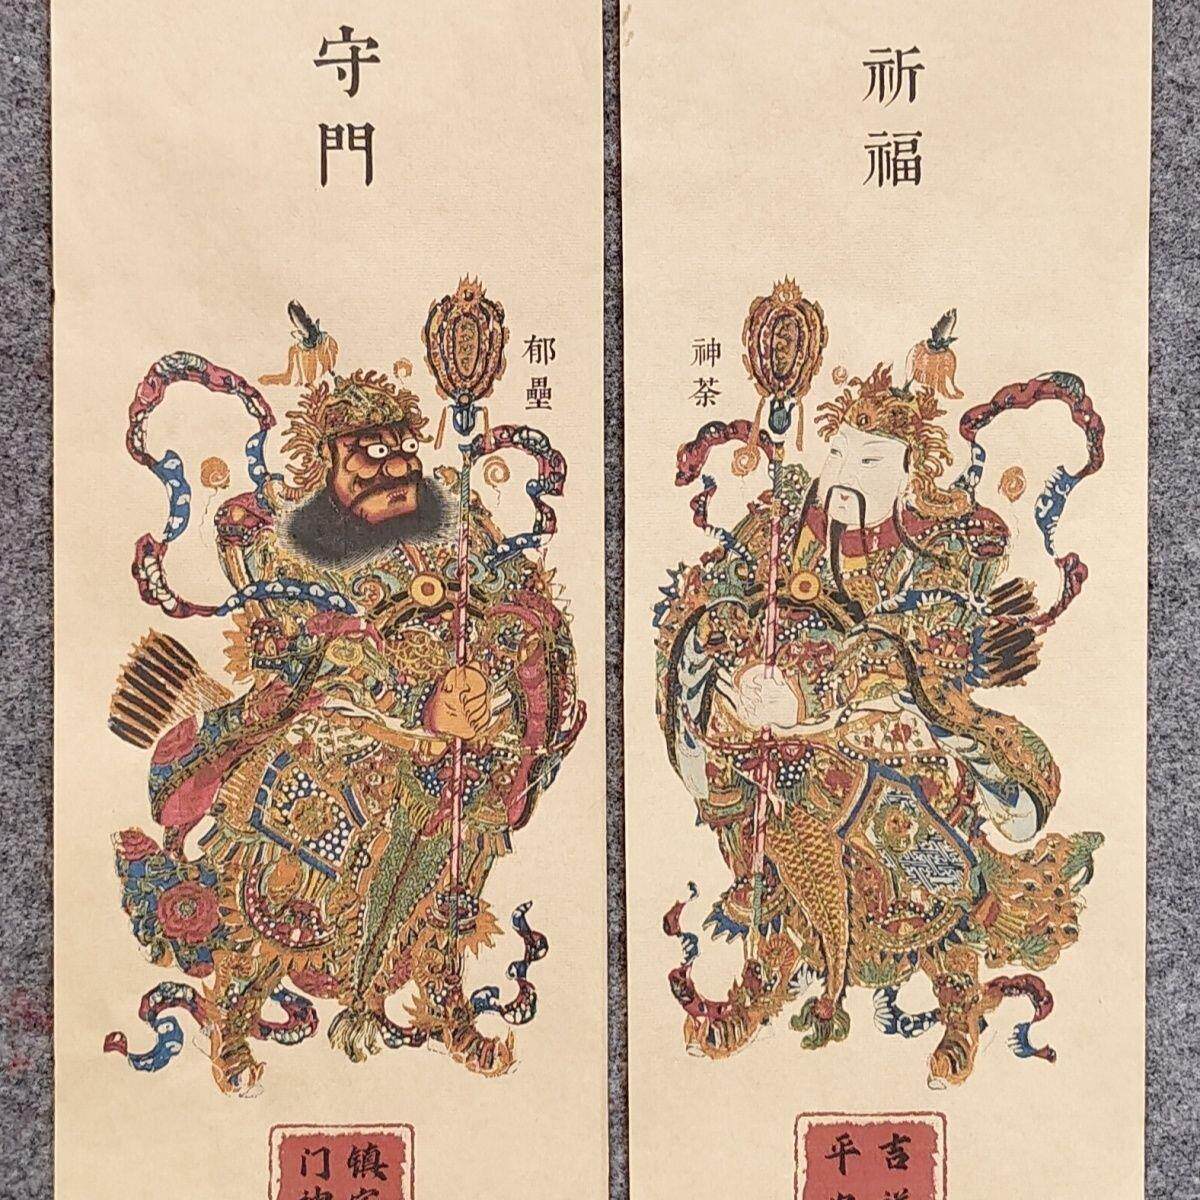 守門
郁壘
镇
门
祈福
神荼
吉
平